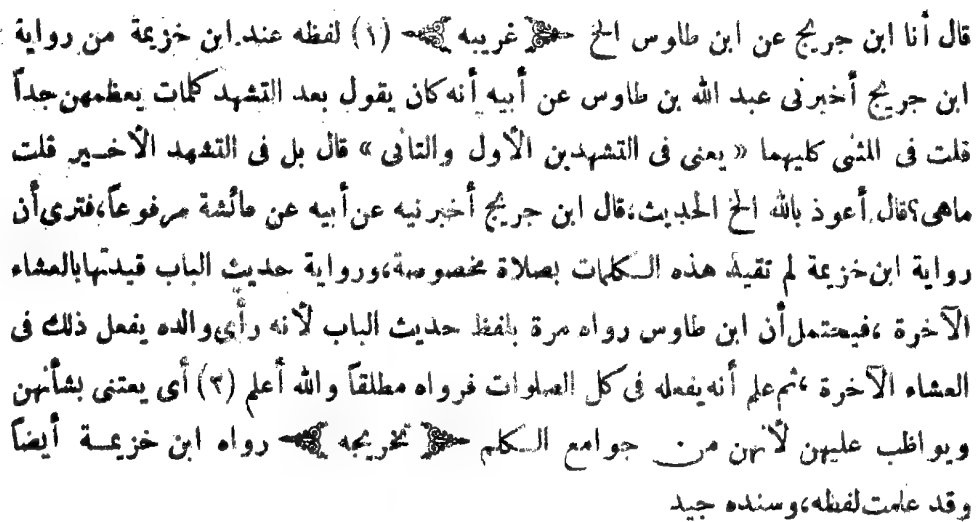 قال أنا ابن جريج عن ابن طاوس الخ ﴿ غريبه ﴾ (١) لفظه عند ابن خزيمة من رواية
ابن جريج أخبرنى عبد الله بن طاوس عن أبيه أنه كان يقول بعد التشهد كلمات يعظمهن جداً
قلت فى المثنى كليهما « يعنى فى التشهدين الأول والثانى » قال بل فى التشهد الأخـير قلت
ماهى؟ قال أعوذ بالله الخ الحديث، قال ابن جريج أخبرنيه عن أبيه عن عائشة مرفوعاً، فترى أن
رواية ابن خزيمة لم تقيد هذه الـكلمات بصلاة مخصوصة، ورواية حديث الباب قيدتها بالعشاء
الآخرة ، فيحتمل أن ابن طاوس رواه مرة بلفظ حديث الباب لأنه رأى والده يفعل ذلك فى
العشاء الآخرة ، ثم علم أنه يفعله فى كل الصلوات فرواه مطلقاً والله أعلم (٢) أى يعتنى بشأنهن
ويواظب عليهن لأنهن من جوامع الـكلم ﴿ تخريجه ﴾ رواه ابن خزيمـة أيضاً
وقد علمت لفظه، وسنده جيد